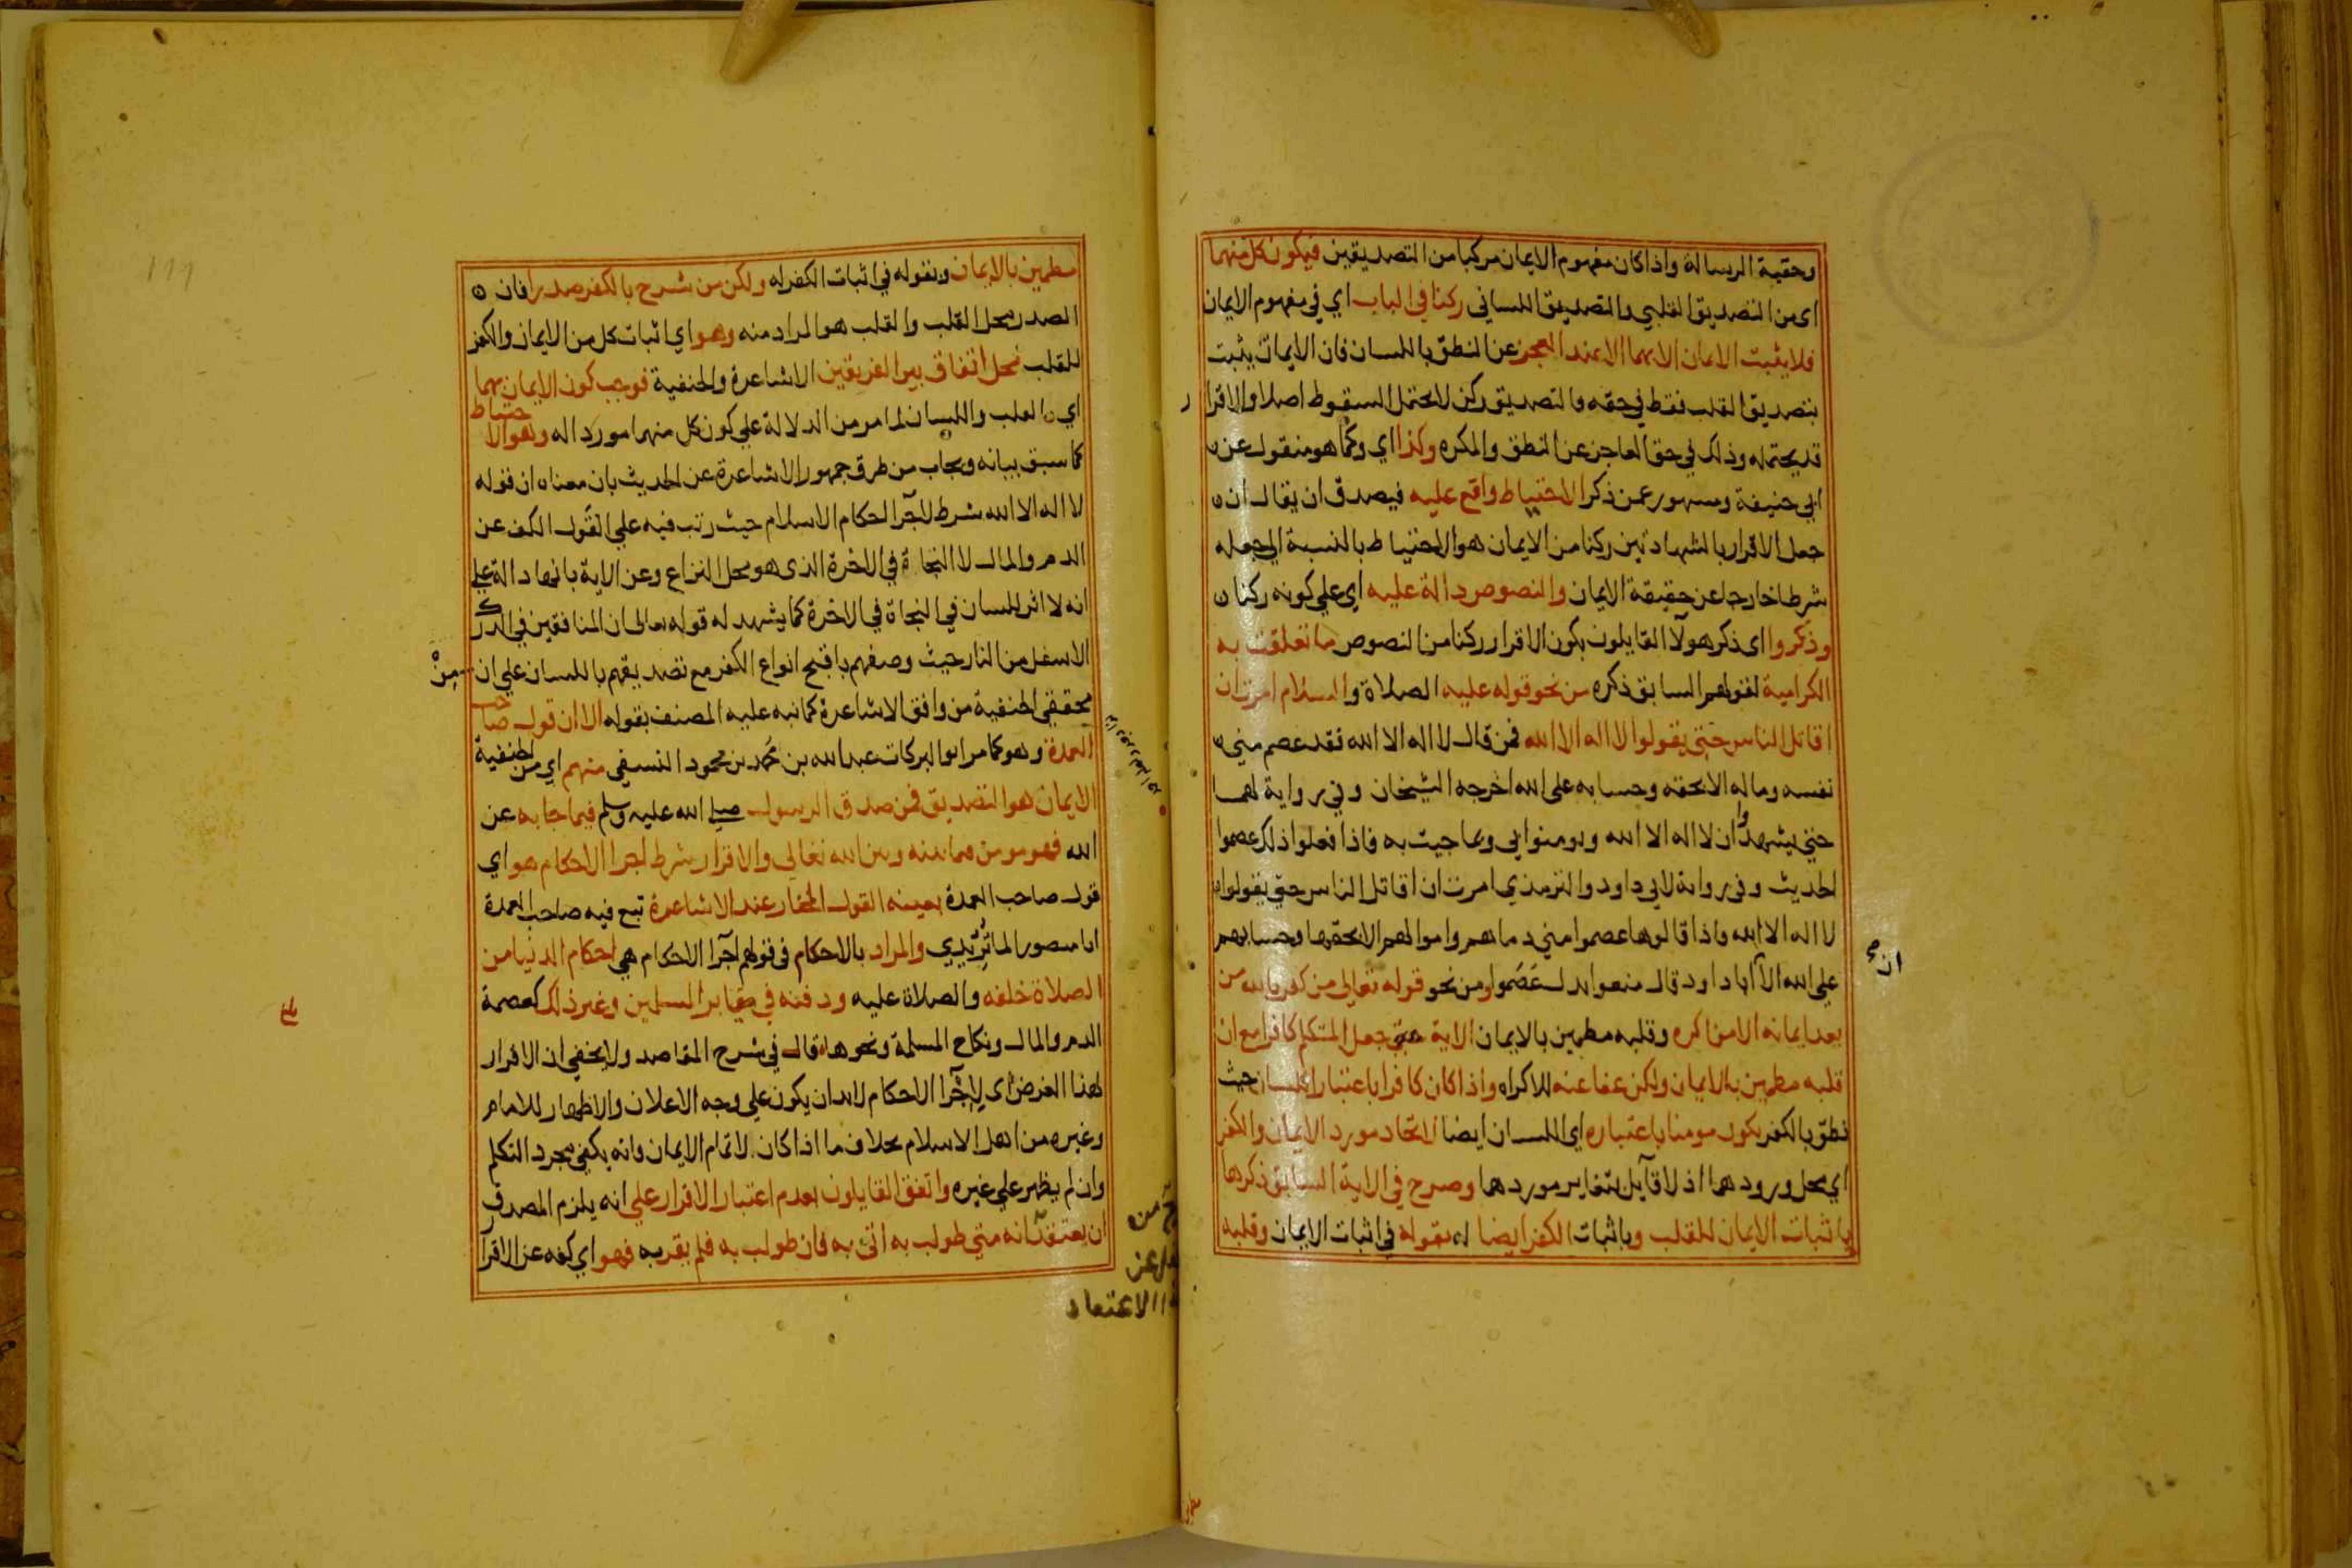 وحقية الرسالة واذا كان مفهوم الايمان مركبا من التصديقين فيكون كل منهما
اى من التصديق القلبي والتصديق اللساني ركنا في الباب اي في مفهوم الايمان
فلا يثبت الايمان الا بهما الا عند العجز عن النطق باللسان فان الايمان يثبت
بتصديق القلب فقط في حقه فالتصديق ركن لا يحتمل السقوط اصلا والاقرا
ر
قد يحتمله وذلك في حق العاجز عن النطق والمكره وكذا اي وكما هو منقول عن
ابي حنيفة ومشهور عن ذكر الاحتياط واقع عليه فيصدق ان يقال ان
جعل الاقرار بالشهادتين ركنا من الايمان هو الاحتياط بالنسبة الى جعله
شرطا خارجا عن حقيقة الايمان والنصوص دالة عليه اي على كونه ركنا
وذكروا اى ذكر هولآ القايلون بكون الاقرار ركنا من النصوص ما تعلقت به
الكرامية لقولهم السابق ذكره من نحو قوله عليه الصلاة والسلام امرت ان
اقاتل الناس حتى يقولوا لا اله الا الله فمن قال لا اله الا الله فقد عصم مني
نفسه وماله الا بحقه وحسابه على الله اخرجه الشيخان وفي رواية لهما
حتى يشهدوا ان لا اله الا الله ويومنوا بي وبما جيت به فاذا فعلوا ذلك عصموا
الحديث وفي رواية لابي داود والترمذي امرت ان اقاتل الناس حتى يقولوا
لا اله الا الله فاذا قالوها عصموا مني دماهم واموالهم الا بحقها وحسابهم
على الله الا ان ابا داود قال منعوا بدل عصموا ومن نحو قوله تعالى من كفر بالله من
بعد ايمانه الا من اكره وقلبه مطمين بالايمان الاية حتى جعل المتكلم كافرا مع ان
قلبه مطمين بالايمان ولكن عفا عنه للاكراه واذا كان كافرا باعتبار اللسان حيث
نطق بالكفر يكون مومنا باعتباره اي اللسان ايضا لاتحاد مورد الايمان والكفر
اي محل ورودهما اذ لا قايل بتغاير موردهما وصرح في الاية السابق ذكرها
باثبات الايمان للقلب وباثبات الكفر ايضا له بقوله في اثبات الايمان وقلبه
مطمين بالايمان وبقوله في اثبات الكفر له ولكن من شرح بالكفر صدرا فان
الصدر محل القلب والقلب هو المراد منه وهو اي اثبات كل من الايمان والكفر
للقلب محل اتفاق بين الفريقين الاشاعرة والحنفية فوجب كون الايمان بهما
اي بالقلب واللسان لما مر من الدلالة على كون كل منهما موردا له وهو الاحتياط
كما سبق بيانه ويجاب من طرف جمهور الاشاعرة عن الحديث بان معناه ان قوله
لا اله الا الله شرط لاجرآ احكام الاسلام حيث رتب فيه على القول الكف عن
الدم والمال لا النجاة في الاخرة الذى هو محل النزاع وعن الاية بانها دالة على
انه لا اثر للسان في النجاة في الاخرة كما يشهد له قوله تعالى ان المنافقين في الدرك
الاسفل من النار حيث وصفهم باقبح انواع الكفر مع تصديقهم باللسان على ان من
محققي الحنفية من وافق الاشاعرة كما نبه عليه المصنف بقوله الا ان قول صاحب
العمدة وهو كما مر ابو البركات عبد الله بن احمد بن محمود النسفي منهم اي من الحنفية
الايمان هو التصديق فمن صدق الرسول صلى الله عليه وسلم فيما جا به عن
الله فهو مومن فيما بينه وبين الله تعالى والاقرار شرط اجرا الاحكام هو اي
قول صاحب العمدة بعينه القول المختار عند الاشاعرة تبع فيه صاحب العمدة
ابا منصور الماتريدي والمراد بالاحكام في قولهم اجرآ الاحكام هي احكام الدنيا من
الصلاة خلفه والصلاة عليه ودفنه في مقابر المسلمين وغير ذلك كعصمة
الدم والمال ونكاح المسلمة ونحوها قال في شرح المقاصد ولا يخفى ان الاقرار
لهذا الغرض اى لاجرآ الاحكام لابد ان يكون على وجه الاعلان والاظهار للامام
وغيره من اهل الاسلام بخلاف ما اذا كان لاتمام الايمان فانه يكفي مجرد التكلم
وان لم يظهر على غيره واتفق القايلون بعدم اعتبار الاقرار على انه يلزم المصدق
ان يعتقد انه متى طولب به اتى به فان طولب به فلم يقر به فهو اي كفه عن الاقرا
عن
الاعتماد